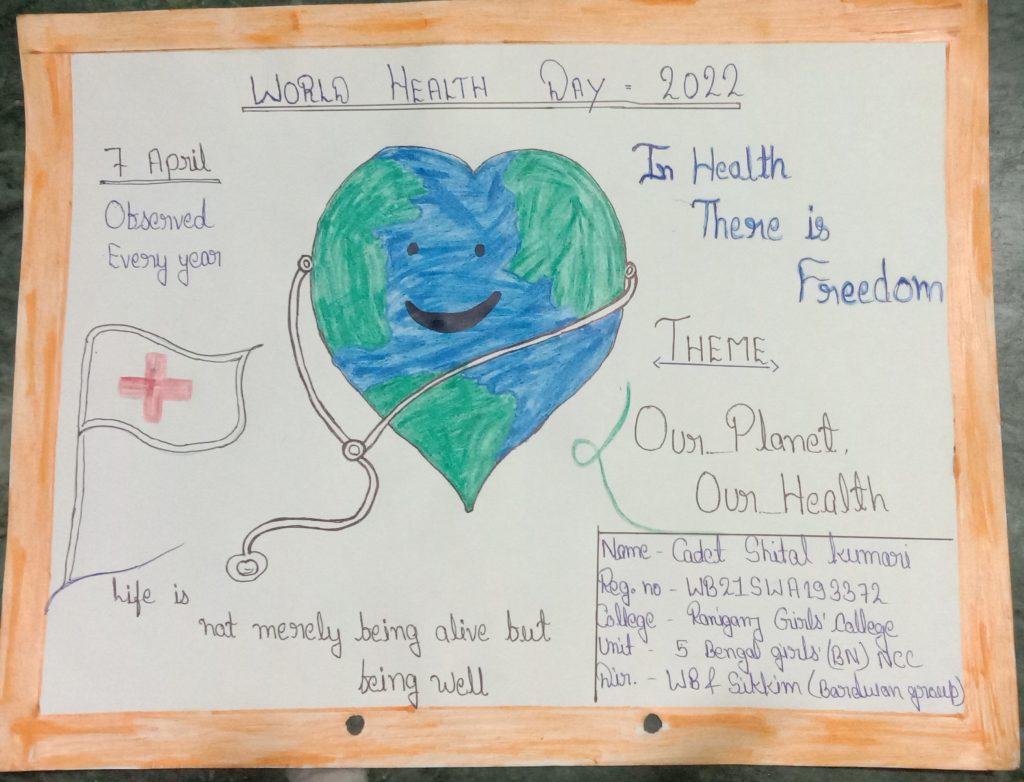 WORLD HEALTH DAY - 2022
7 April
Observed
Every year
In Health
There is
Freedom
THEME
Our Planet,
Our Health
Life is
not merely being alive but
being well
Name - Cadet Shital Kumari
Reg. no - WB21SWA193372
College - Raniganj Girls' College
Unit - 5 Bengal girls' (BN) NCC
Dir. - WB & Sikkim (Bardwan group)